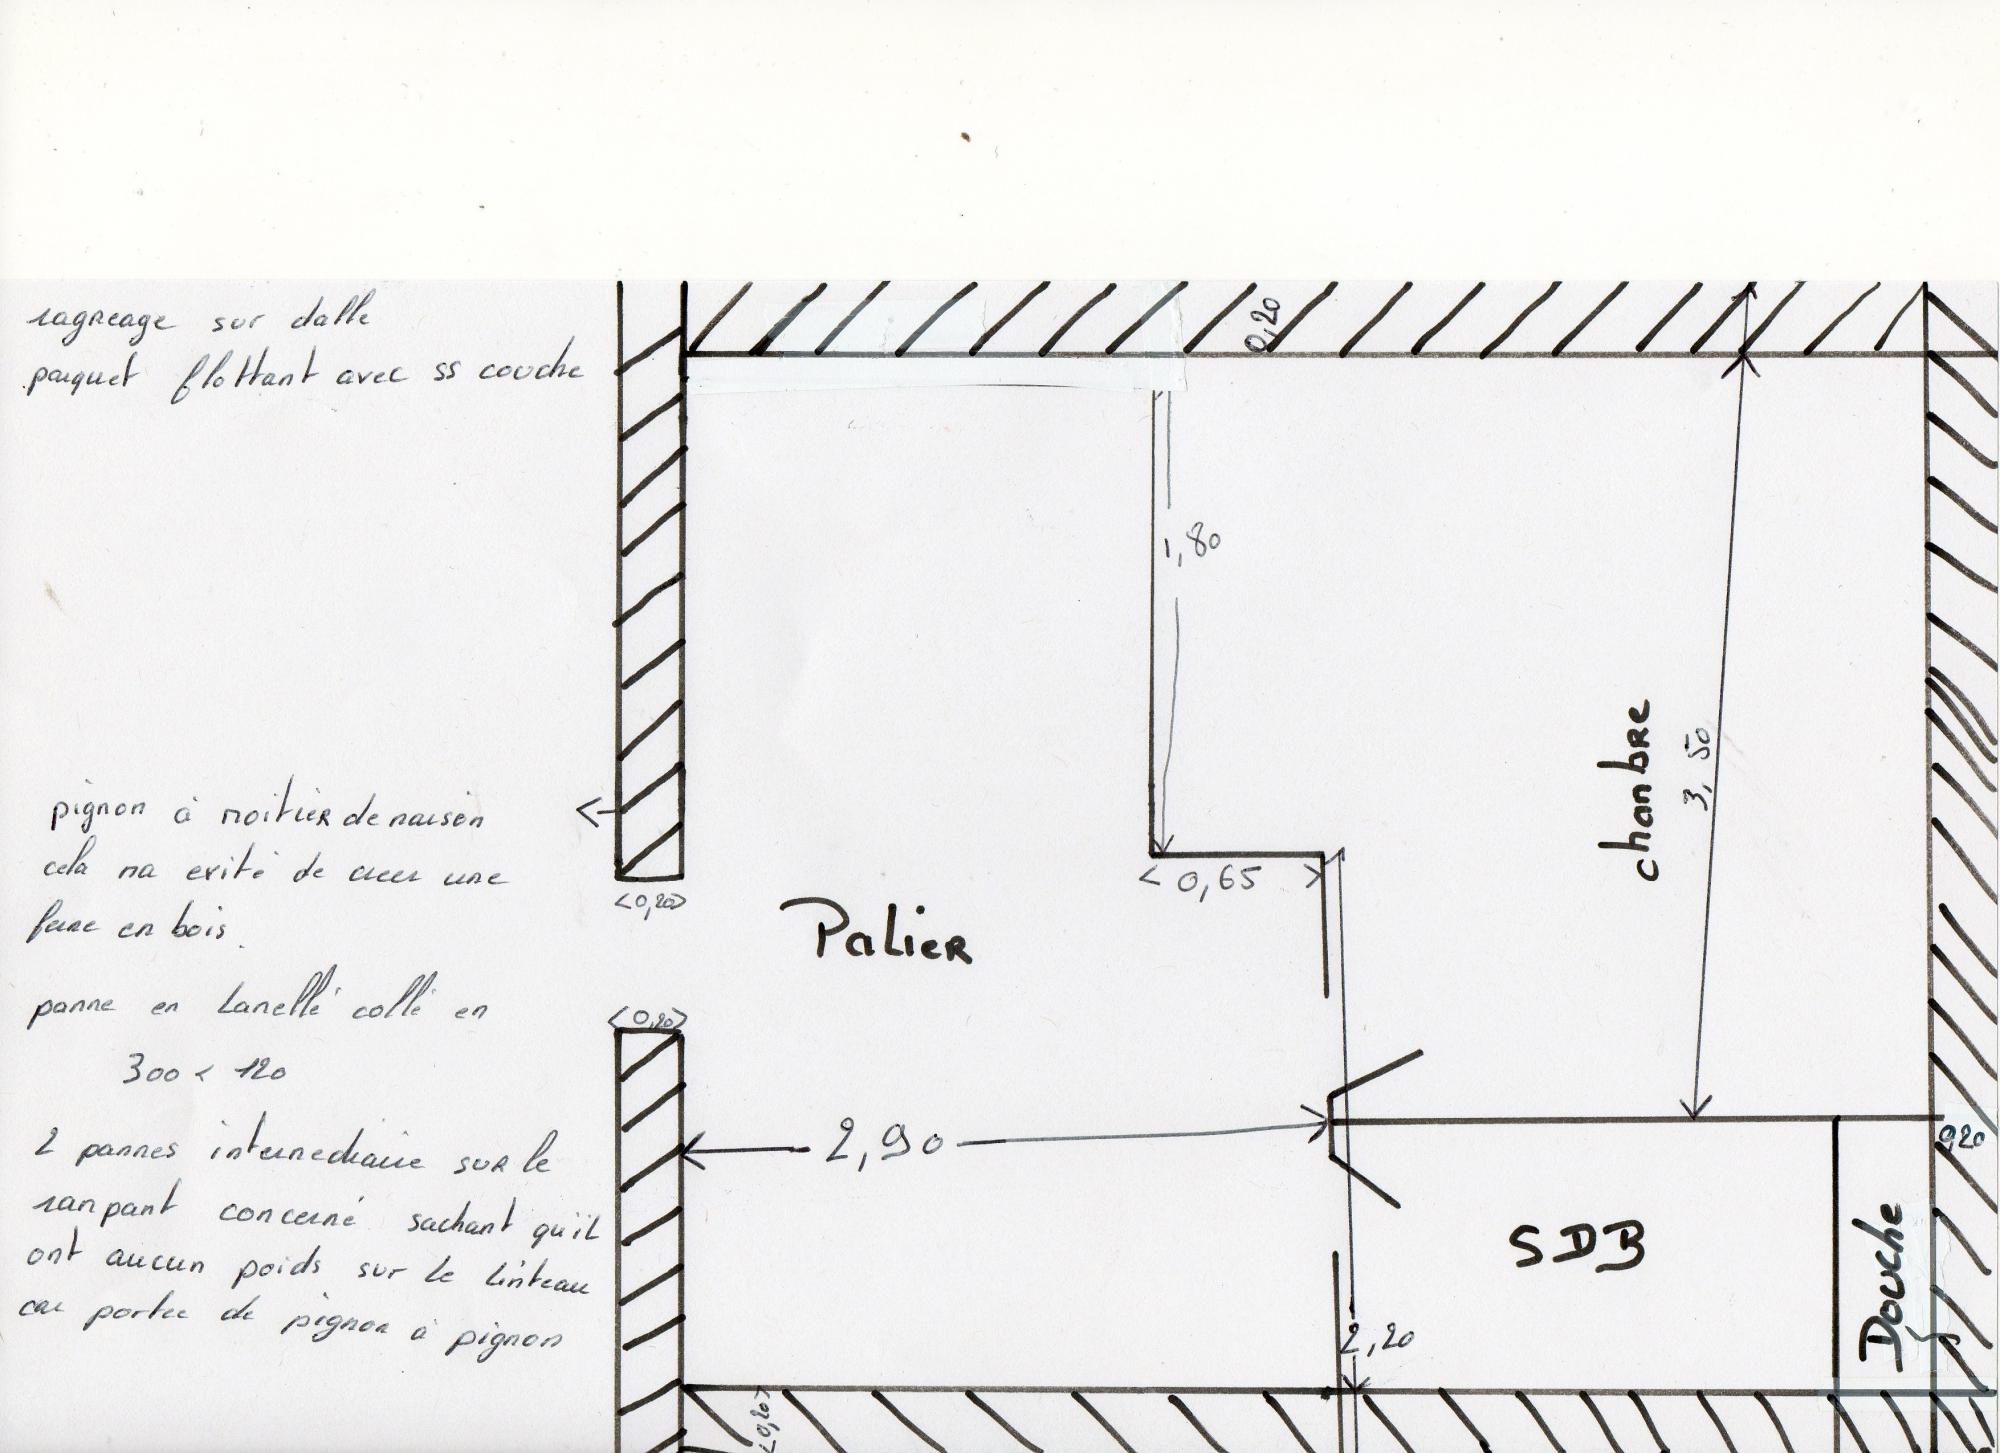 ragreage sur dalle
parquet flottant avec ss couche
pignon à moitièr de maison
cela ma evité de creer une
ferme en bois.
panne en Lamellé collé en
300 x 120
2 pannes intermediaire sur le
rampant concerné sachant qu'il
ont aucun poids sur le linteau
car portee de pignon à pignon
0,20
1,80
0,65
<0,20>
Palier
<0,20>
2,90
chambre
3,50
0,20
SDB
Douche
2,20
<0,20>